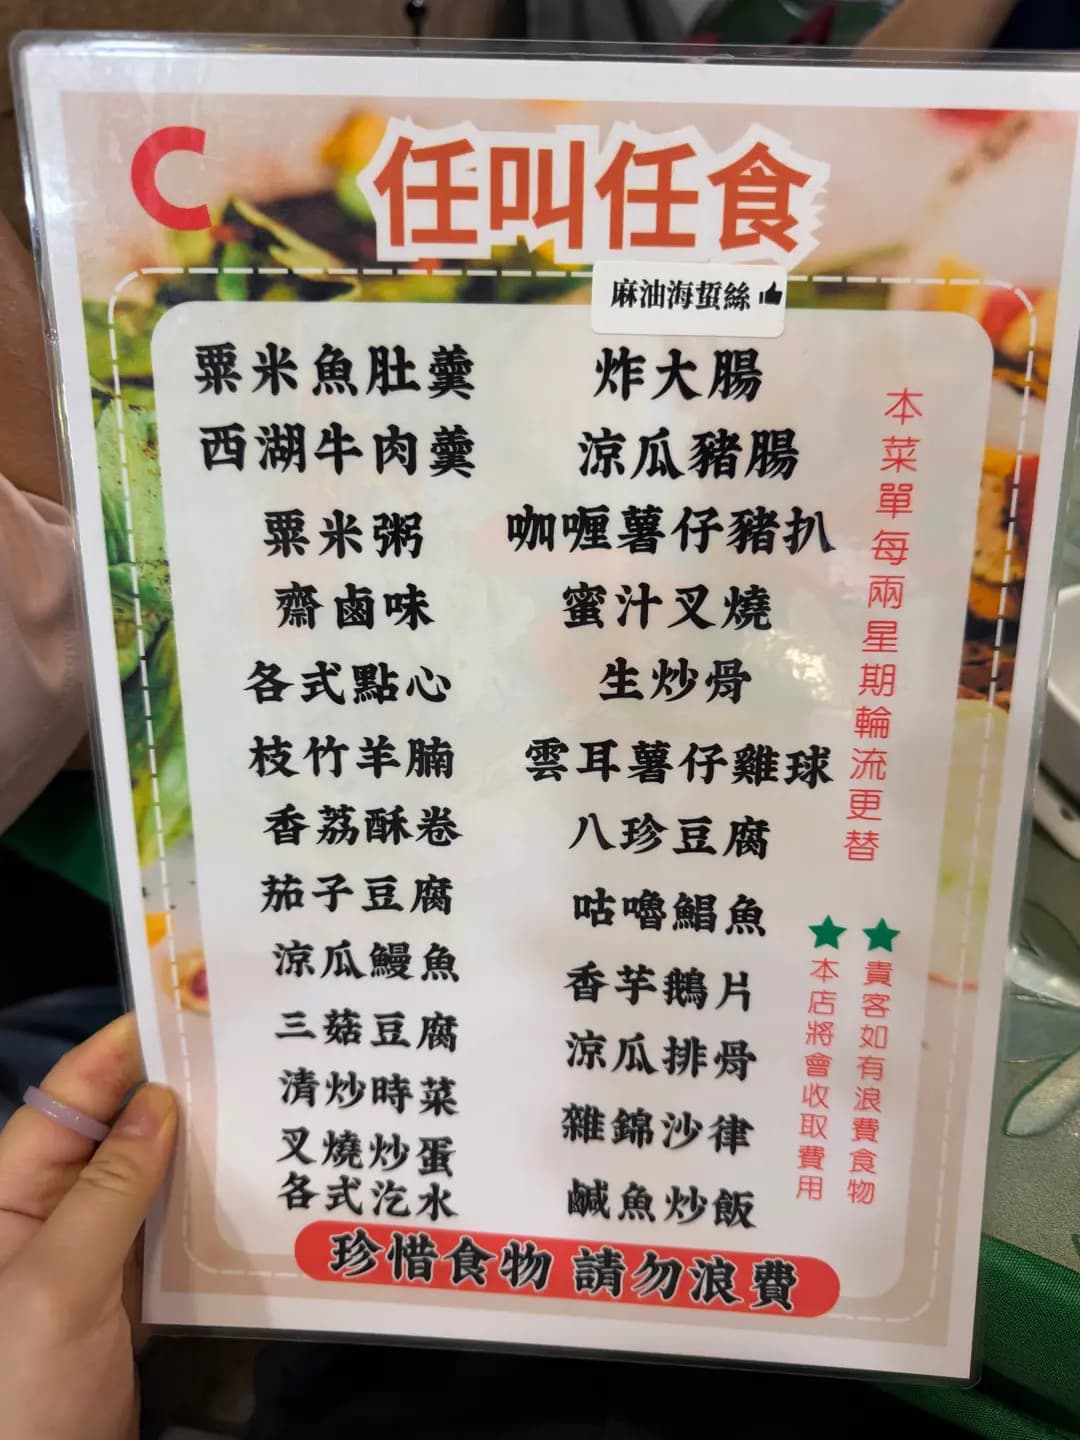 C
任叫任食
麻油海蜇絲
粟米魚肚羹
西湖牛肉羹
粟米粥
齋鹵味
各式點心
枝竹羊腩
香荔酥卷
茄子豆腐
涼瓜鰻魚
三菇豆腐
清炒時菜
叉燒炒蛋
各式汽水
炸大腸
涼瓜豬腸
咖喱薯仔豬扒
蜜汁叉燒
生炒骨
雲耳薯仔雞球
八珍豆腐
咕嚕鯧魚
香芋鵝片
涼瓜排骨
雜錦沙律
鹹魚炒飯
本菜單每兩星期輪流更替
貴客如有浪費食物
本店將會收取費用
珍惜食物 請勿浪費